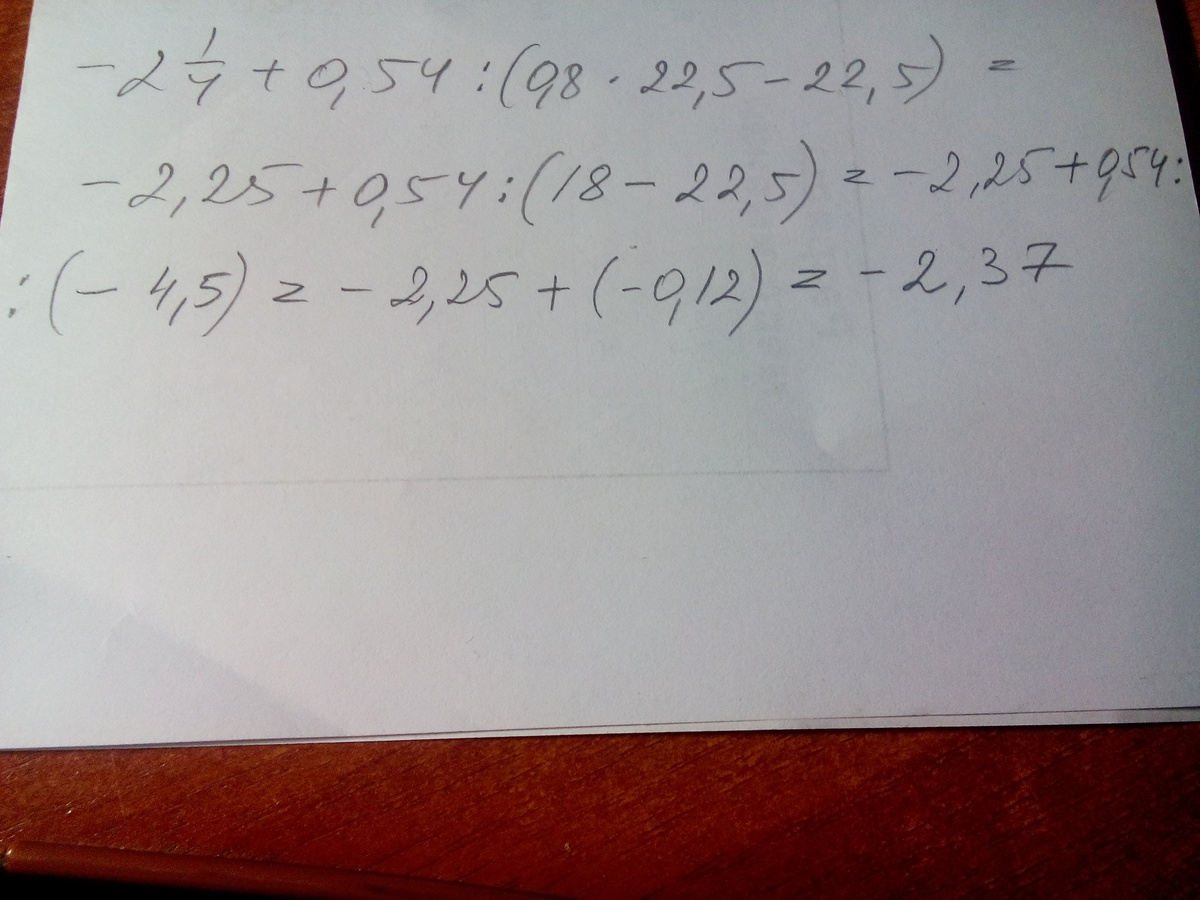 -2 1/4 + 0,54 : (0,8 · 22,5 - 22,5) =
-2,25 + 0,54 : (18 - 22,5) = -2,25 + 0,54 :
: (-4,5) = -2,25 + (-0,12) = -2,37